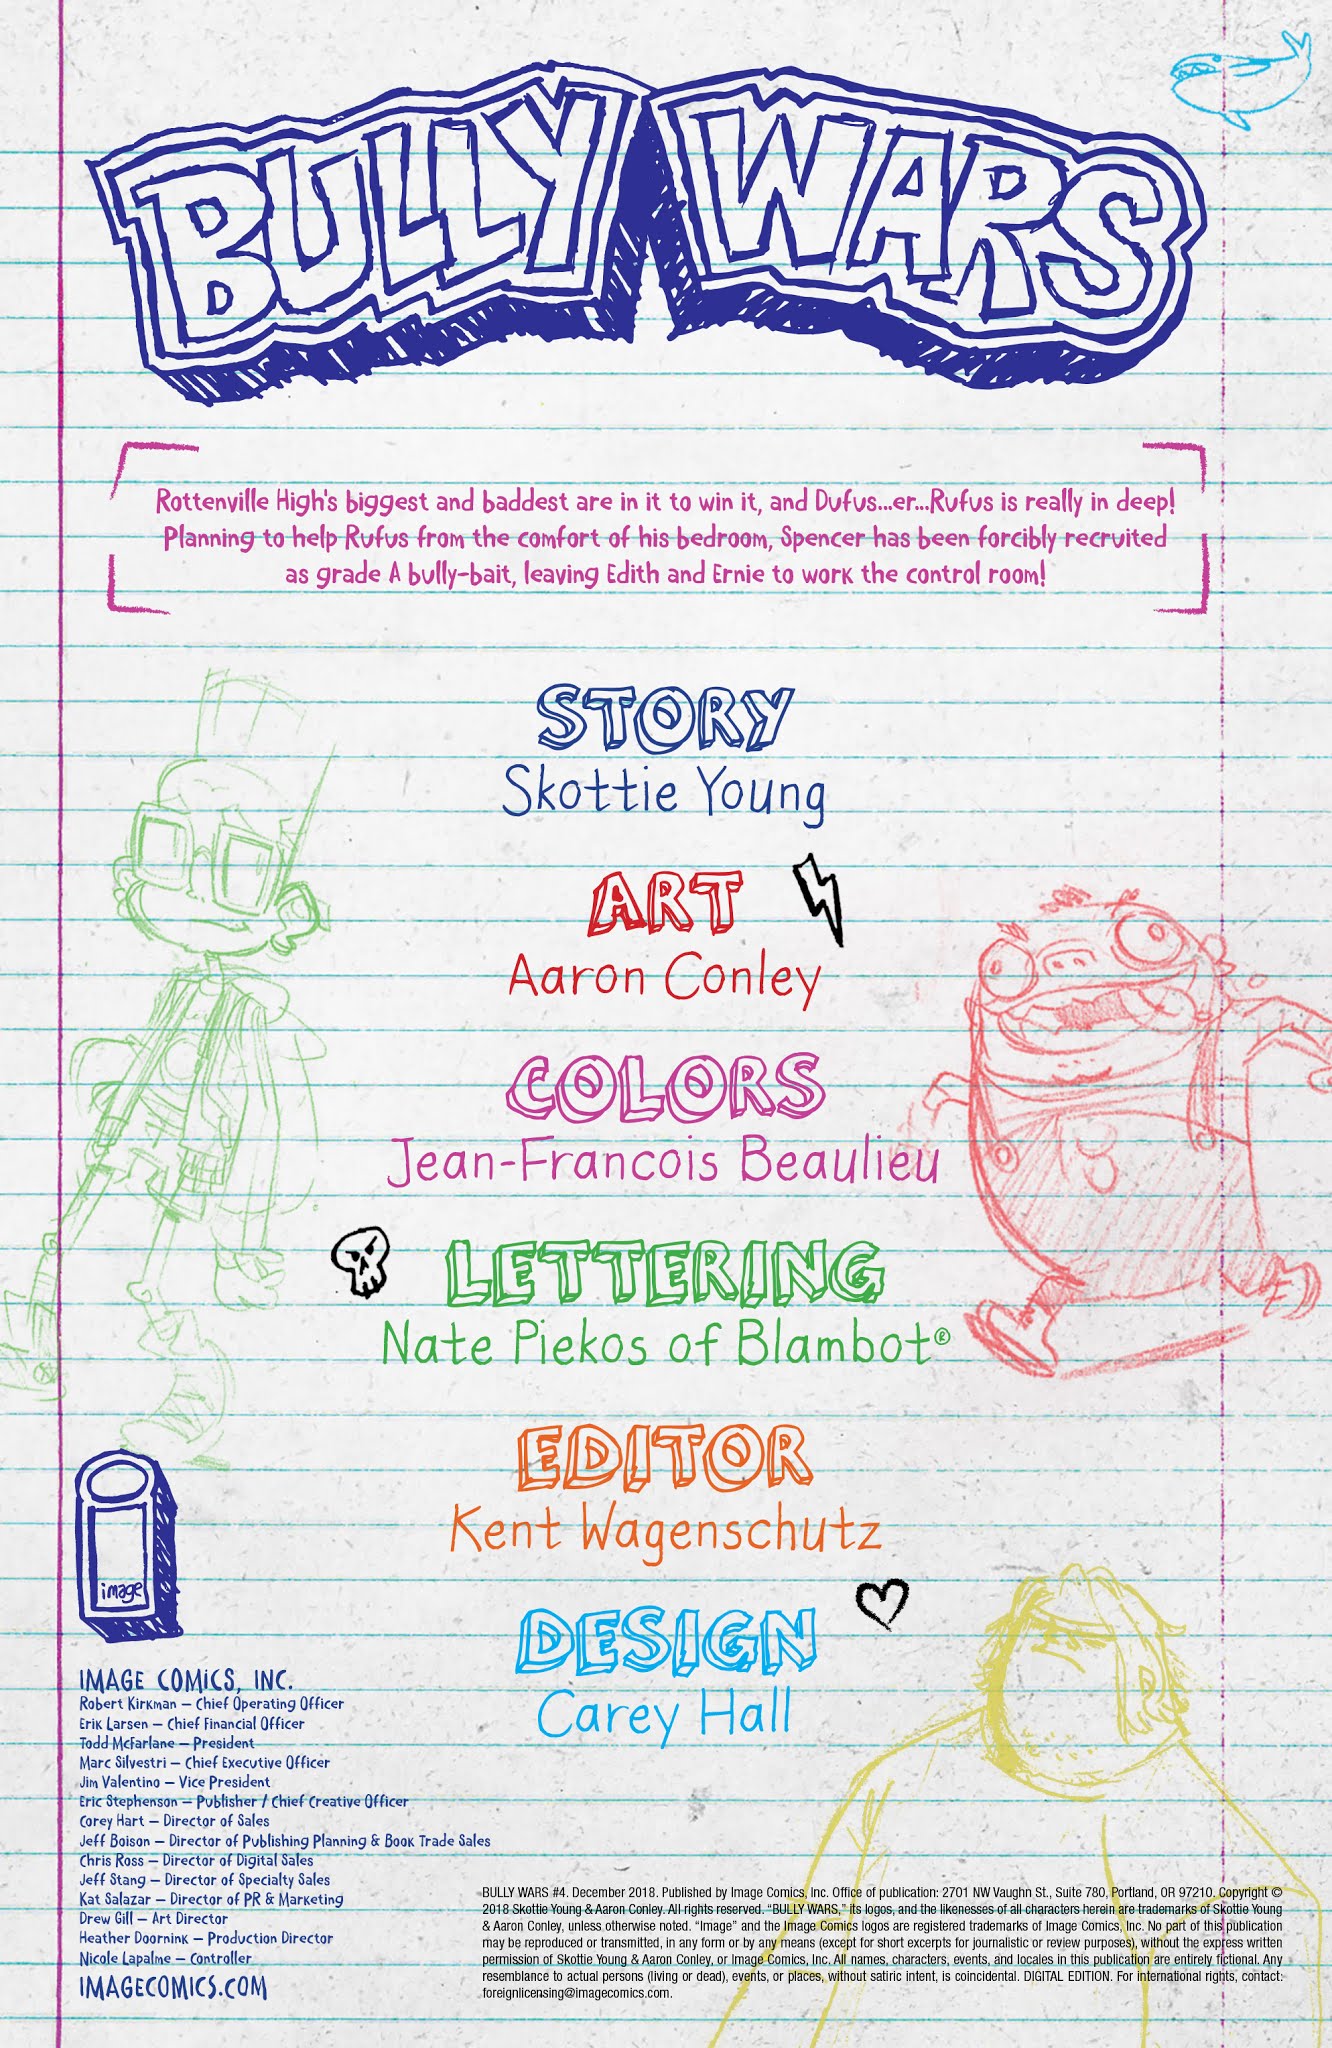 BULLY WARS
Rottenville High's biggest and baddest are in it to win it, and Dufus...er...Rufus is really in deep!
Planning to help Rufus from the comfort of his bedroom, Spencer has been forcibly recruited
as grade A bully-bait, leaving Edith and Ernie to work the control room!
STORY
Skottie Young
ART
Aaron Conley
COLORS
Jean-Francois Beaulieu
LETTERING
Nate Piekos of Blambot®
EDITOR
Kent Wagenschutz
DESIGN
Carey Hall
image
IMAGE COMICS, INC.
Robert Kirkman — Chief Operating Officer
Erik Larsen — Chief Financial Officer
Todd McFarlane — President
Marc Silvestri — Chief Executive Officer
Jim Valentino — Vice President
Eric Stephenson — Publisher / Chief Creative Officer
Corey Hart — Director of Sales
Jeff Boison — Director of Publishing Planning & Book Trade Sales
Chris Ross — Director of Digital Sales
Jeff Stang — Director of Specialty Sales
Kat Salazar — Director of PR & Marketing
Drew Gill — Art Director
Heather Doornink — Production Director
Nicole Lapalme — Controller
IMAGECOMICS.COM
BULLY WARS #4. December 2018. Published by Image Comics, Inc. Office of publication: 2701 NW Vaughn St., Suite 780, Portland, OR 97210. Copyright ©
2018 Skottie Young & Aaron Conley. All rights reserved. “BULLY WARS,” its logos, and the likenesses of all characters herein are trademarks of Skottie Young
& Aaron Conley, unless otherwise noted. “Image” and the Image Comics logos are registered trademarks of Image Comics, Inc. No part of this publication
may be reproduced or transmitted, in any form or by any means (except for short excerpts for journalistic or review purposes), without the express written
permission of Skottie Young & Aaron Conley, or Image Comics, Inc. All names, characters, events, and locales in this publication are entirely fictional. Any
resemblance to actual persons (living or dead), events, or places, without satiric intent, is coincidental. DIGITAL EDITION. For international rights, contact:
foreignlicensing@imagecomics.com.